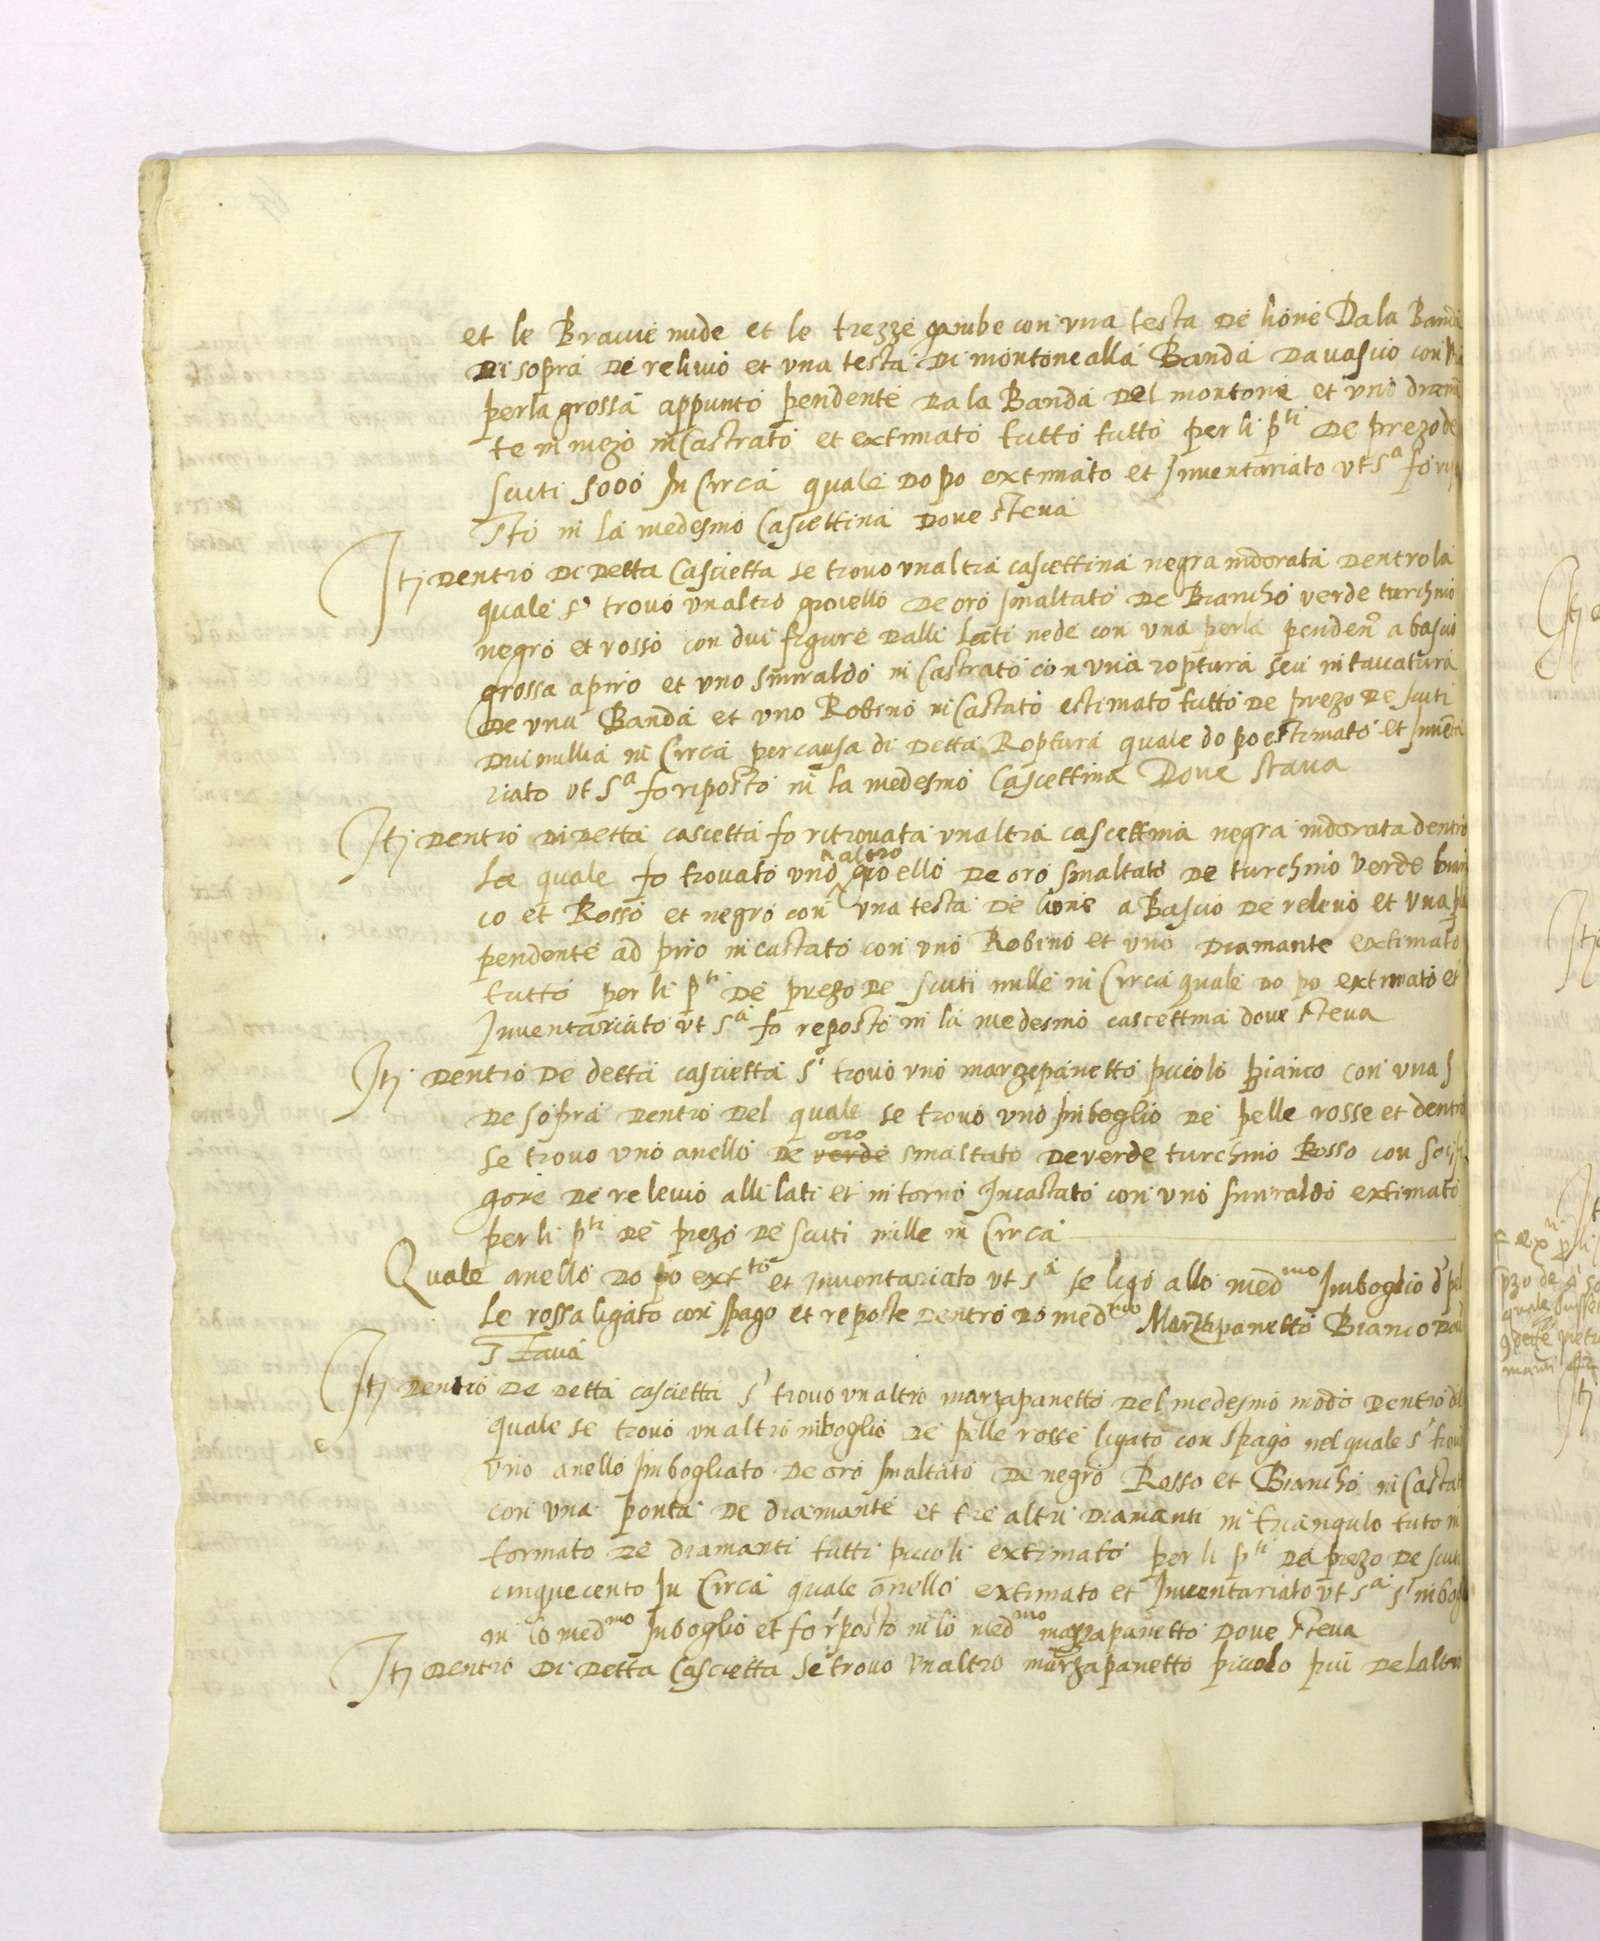 et le Braccie nude et le trezze gambe con una testa de lione Da la Banda
Di sopra De relivio et una testa Di montone alla Banda Da vascio con una
perla grossa appunto pendente Da la Banda Del montone et uno diaman
te in mezo incastrato et extimato tutto tutto per li p^ti De prezo de
scuti 5000 In Circa quale Do po extimato et Inventariato ut s^a fo ripo
sto in la medesmo Cascettina Dove steva
Itj Dentro Di Detta Cascietta se trovo unaltra cascettina negra indorata Dentro la
quale s' trovo unaltro gioiello De oro smaltato De Biancho verde turchino
negro et rosso con dui figure Dalli Lati nede con una perla penden^e a bascio
grossa a piro et uno smiraldo incastrato con una roptura seu intaccatura
De una Banda et uno Robino incastato estimato tutto De prezo De scuti
Dui millia in Circa per causa di Detta Roptura quale do po estimato et Inventa
riato ut s^a fo riposto in la medesmo Cascettina Dove stava
Itj Dentro Di Detta cascetta fo ritrovata unaltra cascettina negra indorata dentro
La quale fo trovato uno altro gioello De oro smaltato De turchino verde bian
co et Rosso et negro con una testa De lione a Bascio De relevo et una perla
pendente ad piro incastato con uno Robino et uno Diamante extimato
tutto per li p^ti De prezo De scuti mille in Circa quale Do po extimato et
Inventariato ut s^a fo reposto in la medesmo cascettina dove steva
Itj Dentro De detta cascietta s' trovo uno marzepanetto piccolo bianco con una s
De sopra Dentro Del quale se trovo uno Imboglio De pelle rosse et dentro
se trovo uno anello De verde oro smaltato De verde turchino Rosso con sei fi
gore De relevio alli lati et intorno Incastato con uno smiraldo extimato
per li p^ti De prezo De scuti mille in Circa
Quale anello Do po ext^to et inventariato ut s^a se ligo allo med^mo Imboglio d' pel
le rossa ligato con spago et reposte Dentro Do med^mo Marzapanetto Bianco Dove
stava
Itj Dentro De Detta cascietta s' trovo unaltro marzapanetto Del medesmo modo Dentro del
quale se trovo unaltro inboglio De pelle rosse ligato con spago nel quale s' trovo
uno anello Imbogliato De oro smaltato De negro Rosso et Biancho incastato
con una ponta De diamante et tre altri Diamanti in triangulo tuto in
tornato De diamanti tutti piccoli extimato per li p^ti De prezo De scuti
cinquecento In Circa quale anello extimato et Inventariato ut s^a s' inbogl
in lo med^mo Inboglio et fo r'posto in lo med^mo marzapanetto Dove steva
Itj Dentro Di Detta Cascietta se trovo unaltro marzapanetto piccolo piu De laltri